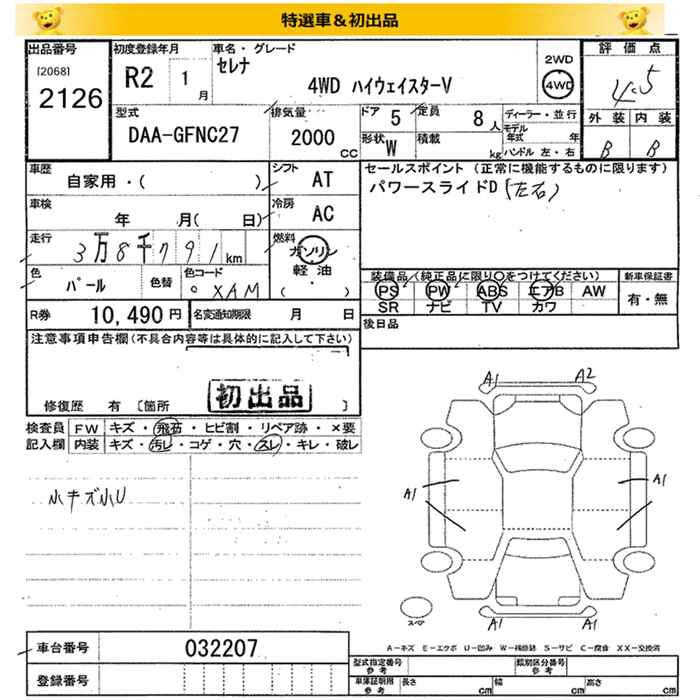 特選車＆初出品
出品番号 初度登録年月 車名・グレード 評価点
[2068] 2126 R2 1月 セレナ 4WD ハイウェイスターV 2WD 4WD 4.5
型式 排気量 ドア 5 定員 8人 ディーラー・並行 外装 内装
DAA-GFNC27 2000cc 形状 W 積載 kg モデル年式 年 ハンドル 左・右 B B
車歴 自家用・( ) シフト AT セールスポイント (正常に機能するものに限ります)
車検 年 月( 日) 冷房 AC パワースライドD(左右)
走行 3万8千791km 燃料 ガソリン 軽油 ( ・ )
色 パール 色替 色コード XAM 装備品(純正品に限り○をつけてください) 新車保証書
PS PW ABS エアB AW 有・無
R券 10,490円 名変通知期限 月 日 SR ナビ TV カワ
注意事項申告欄(不具合内容等は具体的に記入して下さい) 後日品
初出品
修復歴 有 [箇所 ]
検査員 FW キズ・飛石・ヒビ割・リペア跡・×要
記入欄 内装 キズ・汚レ・コゲ・穴・スレ・キレ・破レ
小キズ小U
A1 A2
A1 A1
A1 A1
スペア
A-キズ E-エクボ U-凹み W-補修跡 S-サビ C-腐食 XX-交換済
車台番号 032207 型式指定番号 参考 類別区分番号 参考
登録番号 車庫証明用 参考 長さ cm 幅 cm 高さ cm